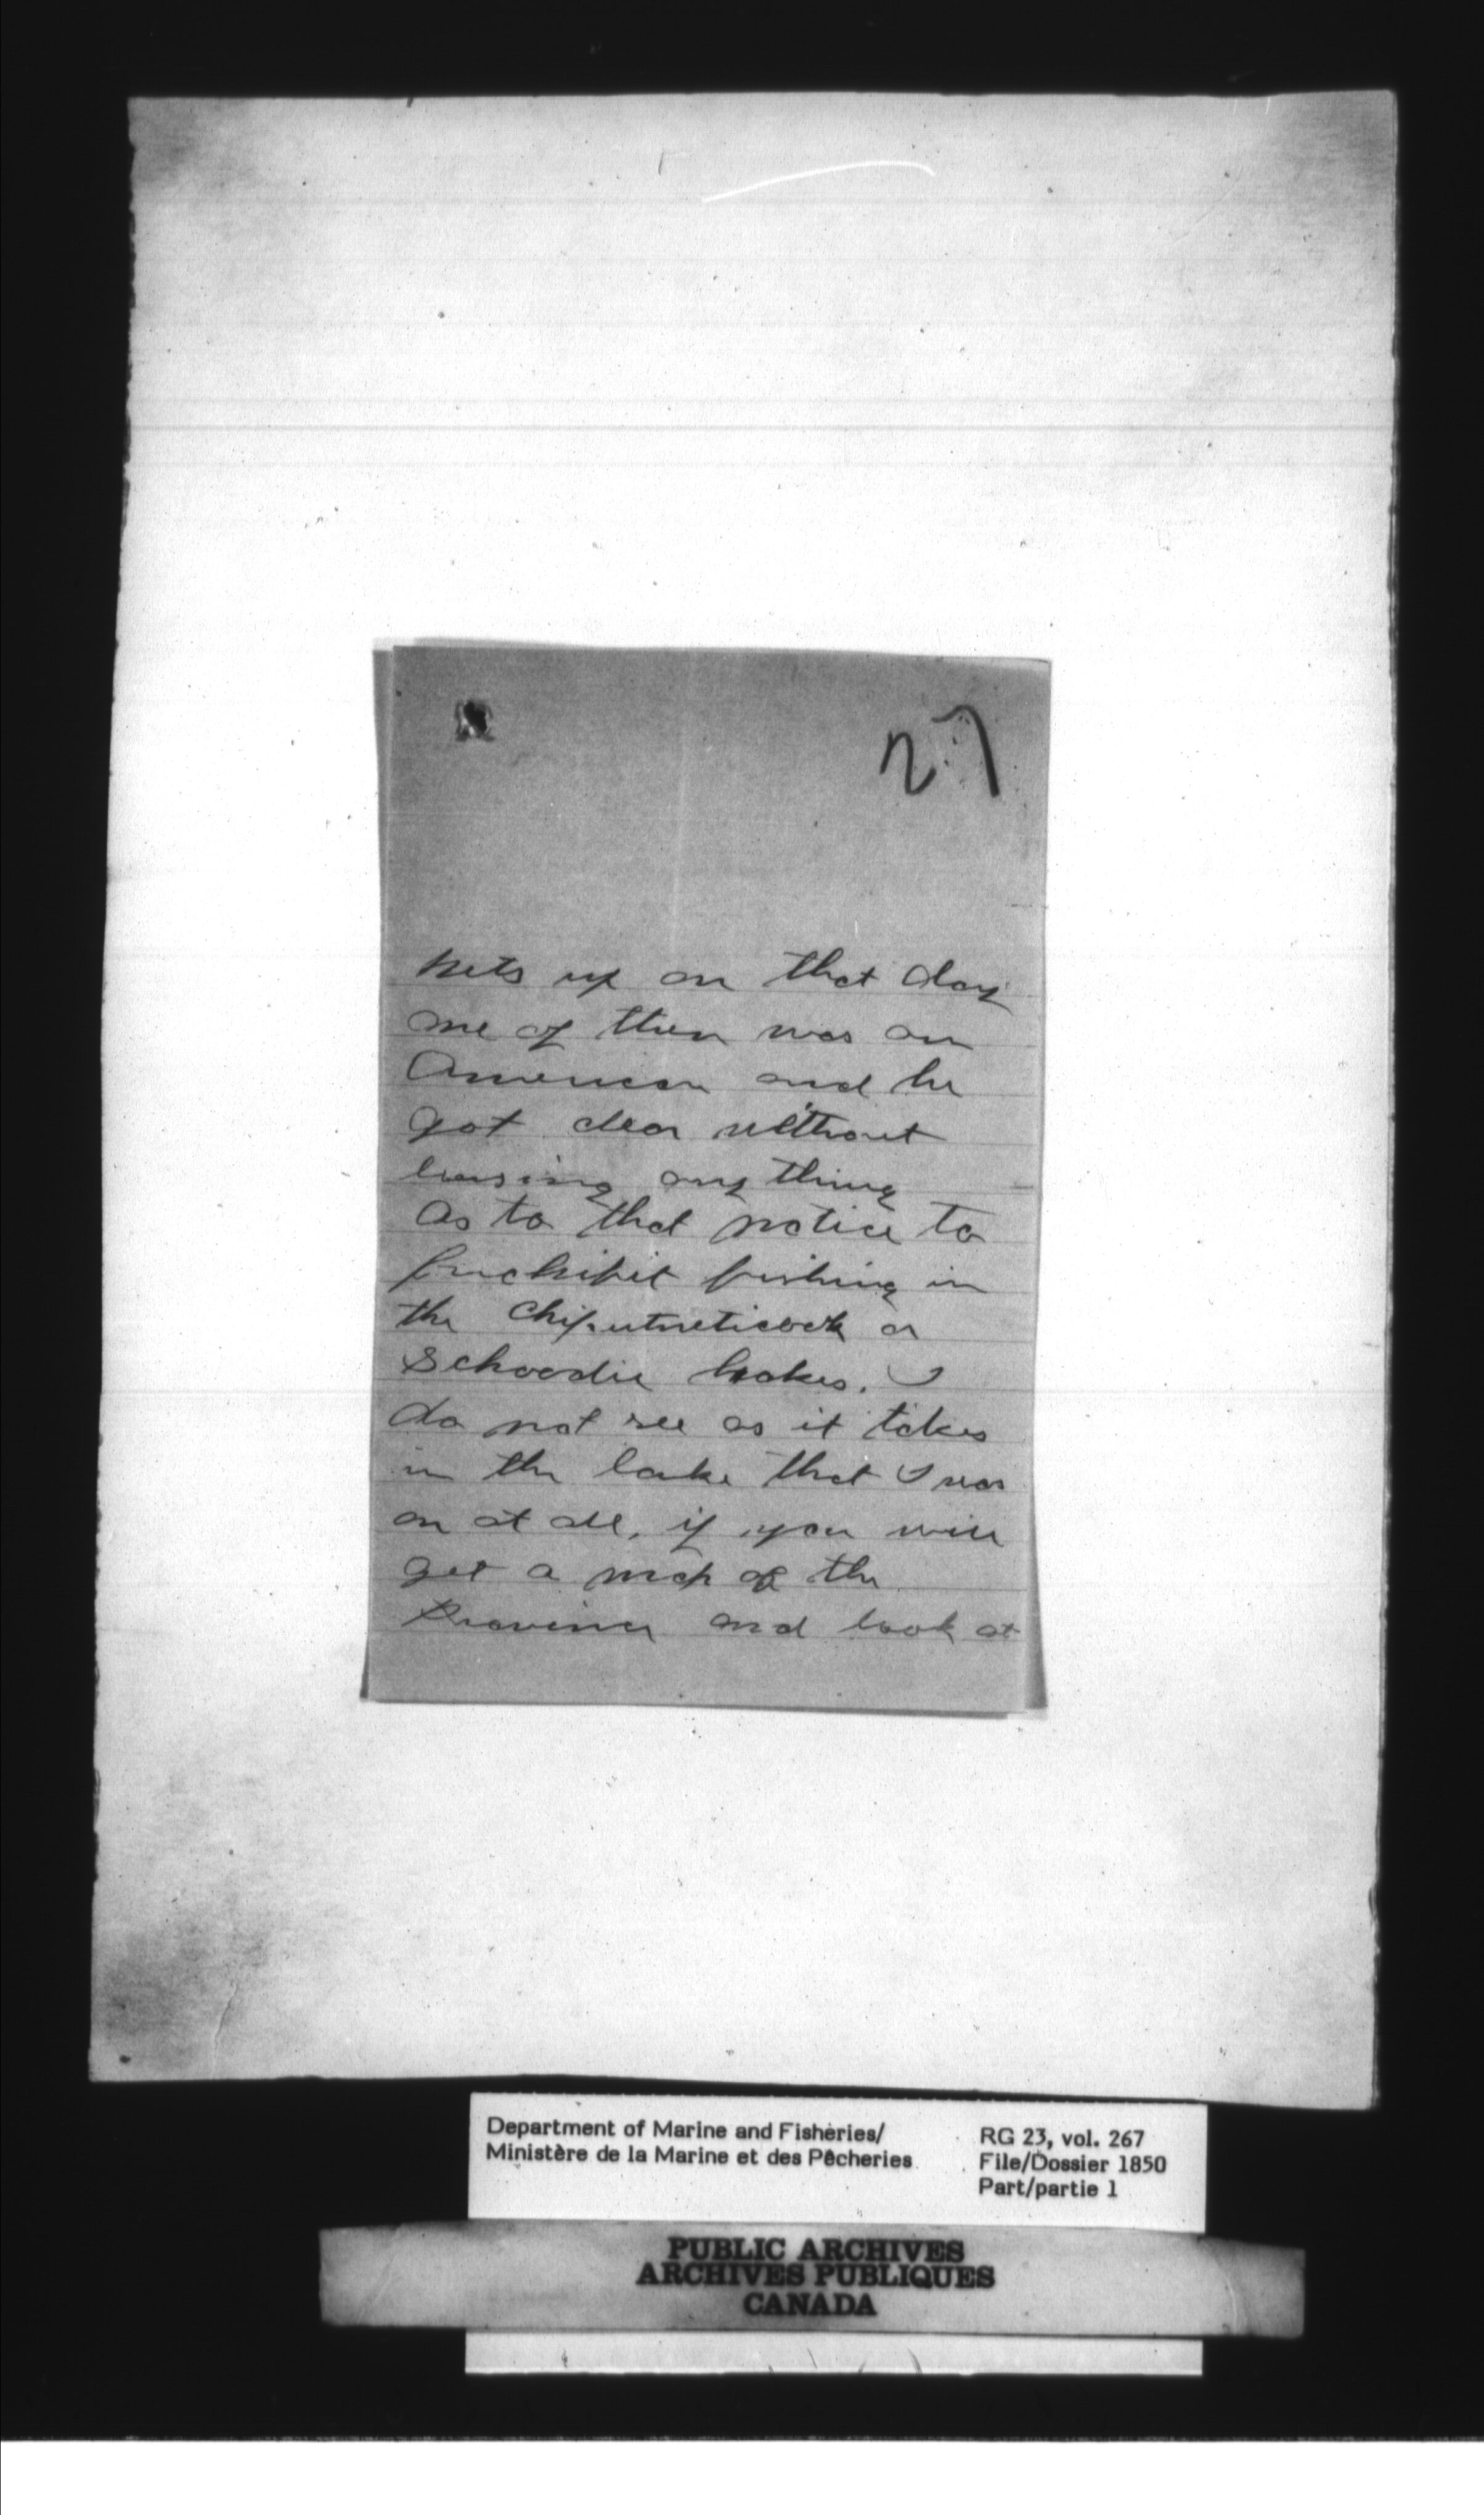 27
nets up on that day
one of them was an
American and he
got clear without
loosing any thing
as to that notice to
Prohibit fishing in
the Chiputneticook or
Schoodic Lakes. I
do not see as it takes
in the lake that I was
on at all, if you will
get a map of the
Province and look at
Department of Marine and Fisheries/
Ministère de la Marine et des Pêcheries
RG 23, vol. 267
File/Dossier 1850
Part/partie 1
PUBLIC ARCHIVES
ARCHIVES PUBLIQUES
CANADA